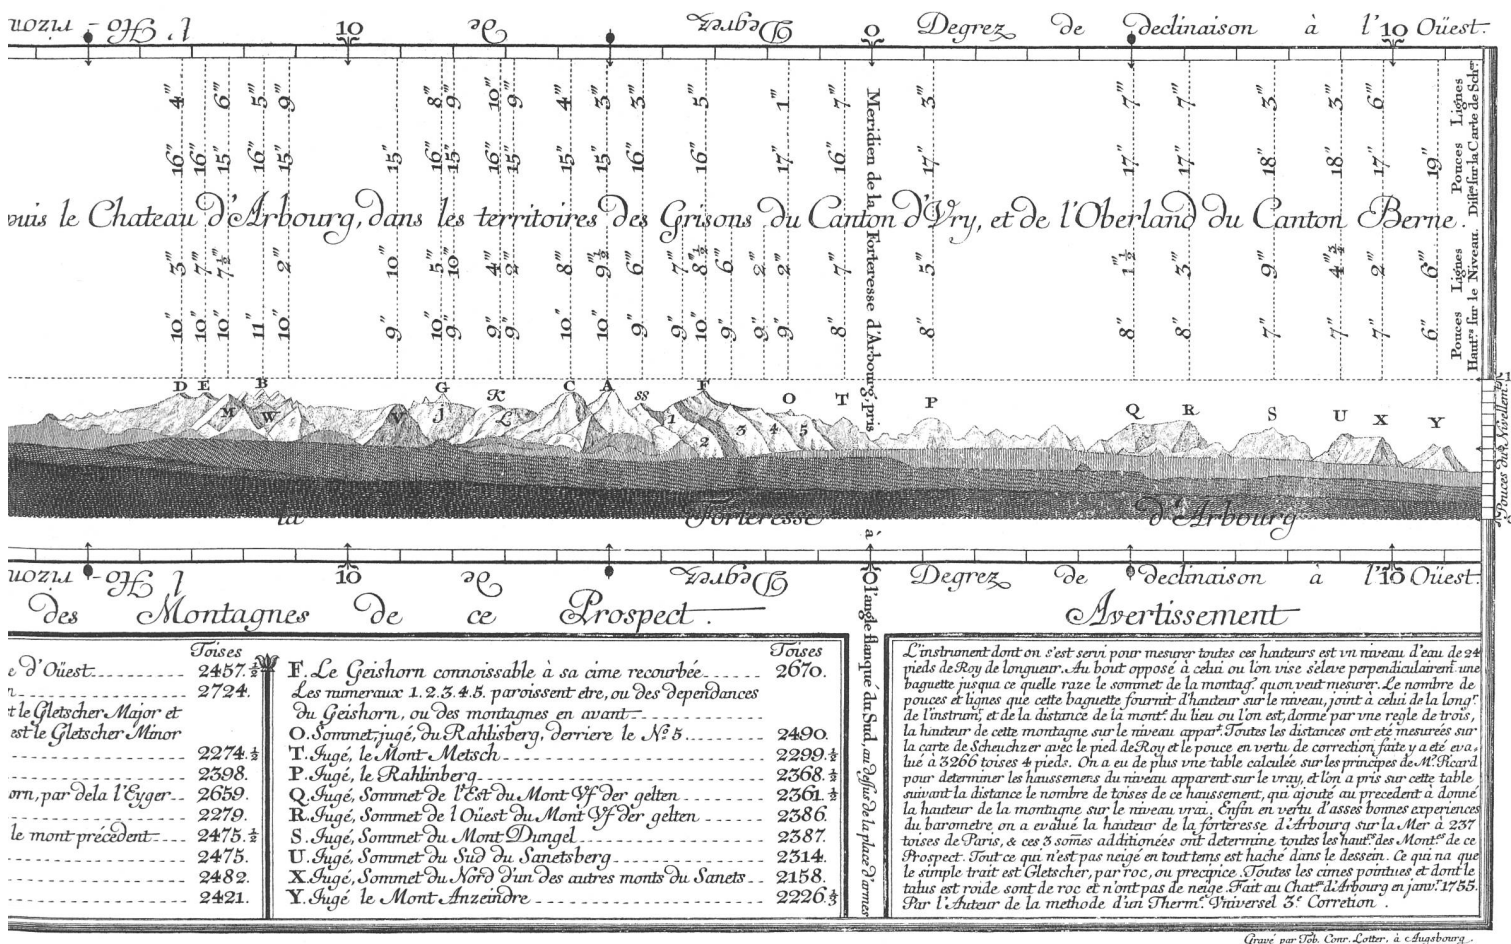 l'Ho-rizon 10 de Degrez 0 Degrez de declinaison à l' 10 Oüest.
4''' 6''' 5''' 9''' 8''' 9''' 10''' 9''' 4''' 3''' 3''' 5''' 1''' 7''' 3''' 7''' 7''' 3''' 3''' 6''' Lignes
16'' 16'' 15'' 16'' 15'' 15'' 16'' 15'' 16'' 15'' 15'' 15'' 16'' 16'' 17'' 16'' 17'' 17'' 17'' 18'' 18'' 17'' 19'' Pouces
Dist.es sur la Carte de Sch.er
puis le Chateau d'Arbourg, dans les territoires des Grisons du Canton d'Vry, et de l'Oberland du Canton Berne.
3''' 7''' 7½''' 2''' 10''' 5''' 10''' 4''' 2''' 8''' 9½''' 6''' 7''' 8½''' 6''' 2''' 2''' 7''' 5''' 1½''' 3''' 9''' 4¾''' 2''' 6''' Lignes
10'' 10'' 10'' 11'' 10'' 9'' 10'' 9'' 9'' 9'' 10'' 10'' 9'' 9'' 10'' 9'' 9'' 9'' 8'' 8'' 8'' 8'' 7'' 7'' 7'' 6'' Pouces
Haut.rs sur le Niveau.
Meridien de la Forteresse d'Arbourg, pris
à l'angle flanqué du Sud, au dessus de la place d'armes
D E B G K C A ss F O T P Q R S U X Y
M W V J L 1 2 3 4 5
Pouces du Nivellem.t
la Forteresse d'Arbourg
l'Ho-rizon 10 de Degrez 0 Degrez de declinaison à l' 10 Oüest.
des Montagnes de ce Prospect.
Toises
e d'Oüest 2457.½
n 2724.
t le Gletscher Major et
est le Gletscher Minor
2274.½
2398.
orn, par dela l'Eyger 2659.
2279.
le mont précedent 2475.½
2475.
2482.
2421.
Toises
F. Le Geishorn connoissable à sa cime recourbée 2670.
Les numeraux 1. 2. 3. 4. 5. paroissent etre, ou des dependances
du Geishorn, ou des montagnes en avant
O. Sommet, jugé, du Rahlisberg, derriere le No. 5 2490.
T. Jugé, le Mont Metsch 2299.½
P. Jugé, le Rahlinberg 2368.½
Q. Jugé, Sommet de l'Est du Mont Vf der gelten 2361.½
R. Jugé, Sommet de l Oüest du Mont Vf der gelten 2386.
S. Jugé, Sommet du Mont Dungel 2387.
U. Jugé, Sommet du Sud du Sanetsberg 2314.
X. Jugé, Sommet du Nord d'un des autres monts du Sanets 2158.
Y. Jugé le Mont Anzeindre 2226.⅓
Avertissement
L'instrument dont on s'est servi pour mesurer toutes ces hauteurs est un niveau d'eau de 24
pieds de Roy de longueur. Au bout opposé à celui ou l'on vise s'eleve perpendiculairem.t une
baguette jusqu a ce quelle raze le sommet de la montag.e qu'on veut mesurer. Le nombre de
pouces et lignes que cette baguette fournit d'hauteur sur le niveau, joint à celui de la long.r
de l'instrum.t et de la distance de la mont.e du lieu ou l'on est, donne par vne regle de trois,
la hauteur de cette montagne sur le niveau appar.t Toutes les distances ont eté mesurées sur
la carte de Scheuchzer avec le pied de Roy et le pouce en vertu de correction faite y a eté eva-
lué à 3266 toises 4 pieds. On a eu de plus vne table calculée sur les principes de M.r Picard
pour determiner les haussemens du niveau apparent sur le vray, et l'on a pris sur cette table
suivant la distance le nombre de toises de ce haussement, qui ajouté au precedent à donné
la hauteur de la montagne sur le niveau vrai. Enfin en vertu d'asses bonnes experiences
du barometre on a evalué la hauteur de la forteresse d'Arbourg sur la Mer à 237
toises de Paris, & ces 3 somes additionées ont determine toutes les haut.rs des Mont.es de ce
Prospect. Tout ce qui n'est pas neigé en tout tems est haché dans le dessein. Ce qui na que
le simple trait est Gletscher, par roc, ou precipice. Toutes les cimes pointues et dont le
talus est roide sont de roc et n'ont pas de neige. Fait au Chat.au d'Arbourg en janv.r 1755.
Par l'Auteur de la methode d'un Therm.e Vniversel 3.e Corretion.
Gravé par Tob. Conr. Lotter, à Augsbourg.